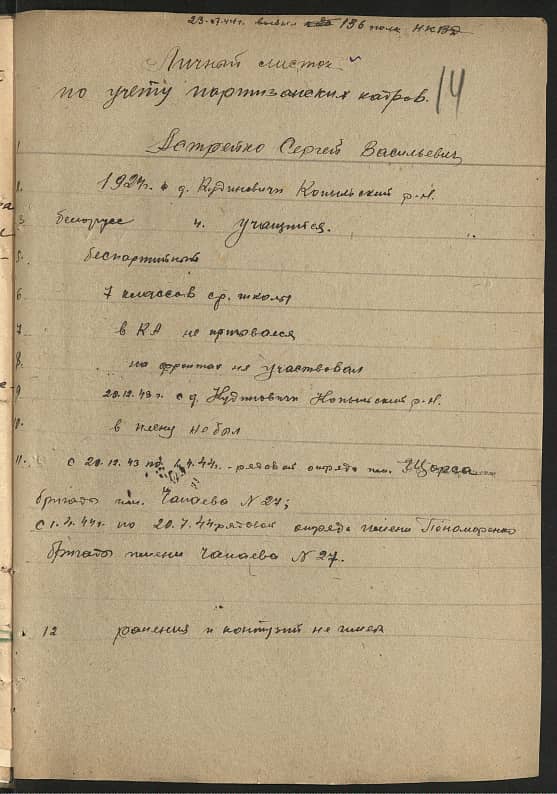 23.07.44г. выбыл 136 полк НКВД
Личный листок
по учету партизанских кадров.
14
1 Дотрейко Сергей Васильевич
2. 1927г. в д. Кудиновичи Копыльский р-н.
3 белорусс 4. учащийся.
5. беспартийный
6 7 классов ср. школы
7 в КА не
8. на фронтах не участвовал
9 20.12.43г. с д. Кудиновичи Копыльский р-н.
10. в плену не был
11. с 20.12.43 по 1.4.44г. - рядовой отряда им. Щорса
бригады им. Чапаева N 27;
с 1.4.44г. по 20.7.44 рядовой отряда имени Пономаренко
бригады имени Чапаева N 27.
12 ранения и контузий не имел